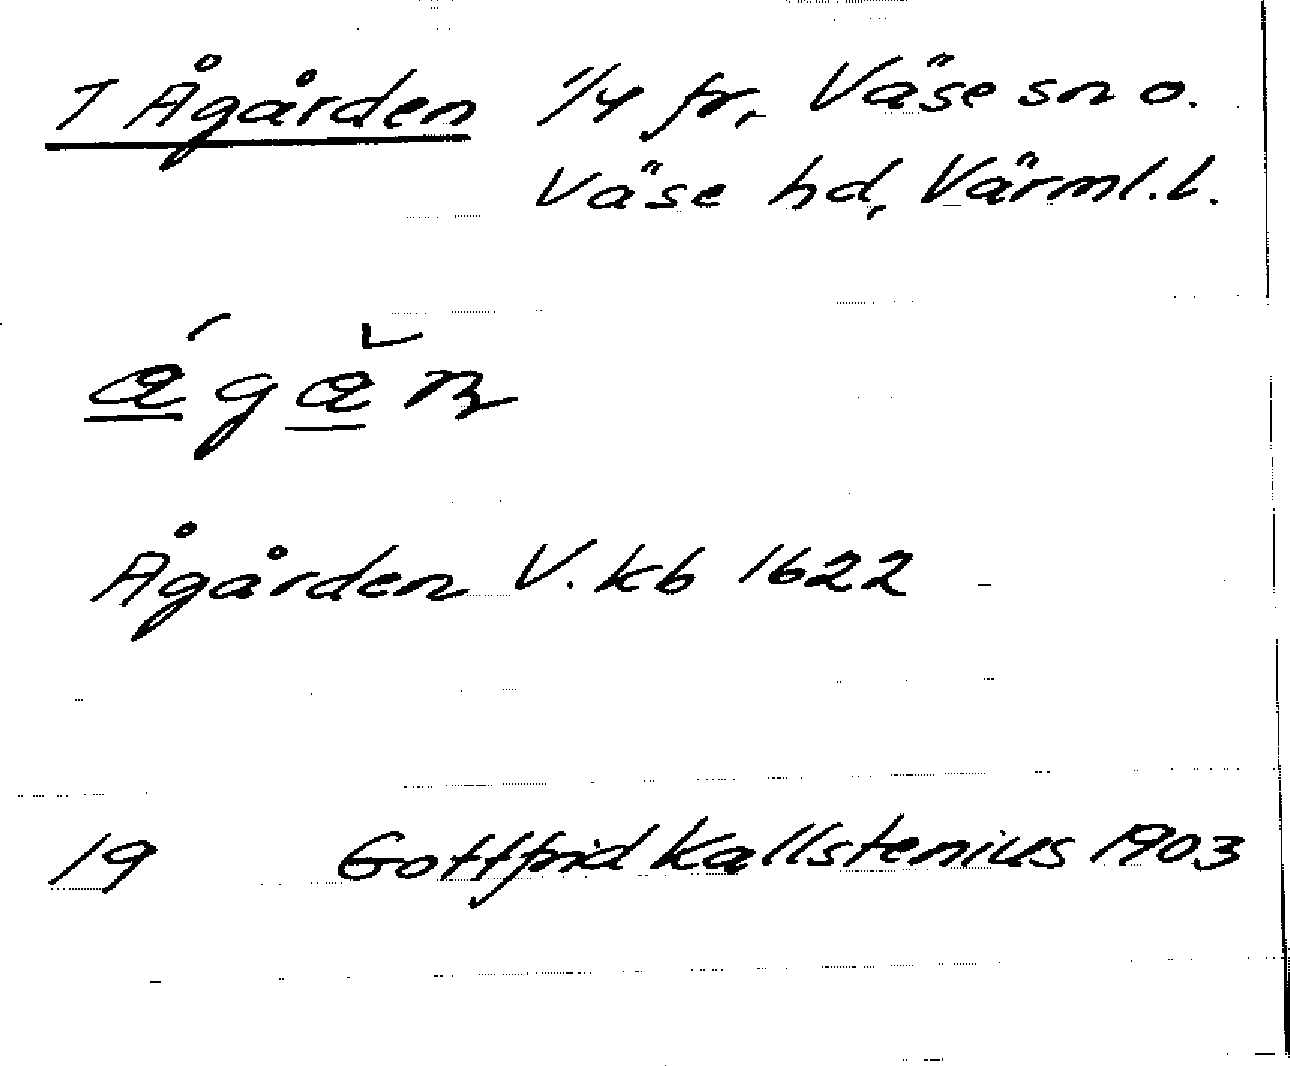 7 Ågården 1/4 fr, Väse sn o.
Väse hd, Värml.l.
Ågården V. kb 1622
19 Gottfrid Kallstenius 1903